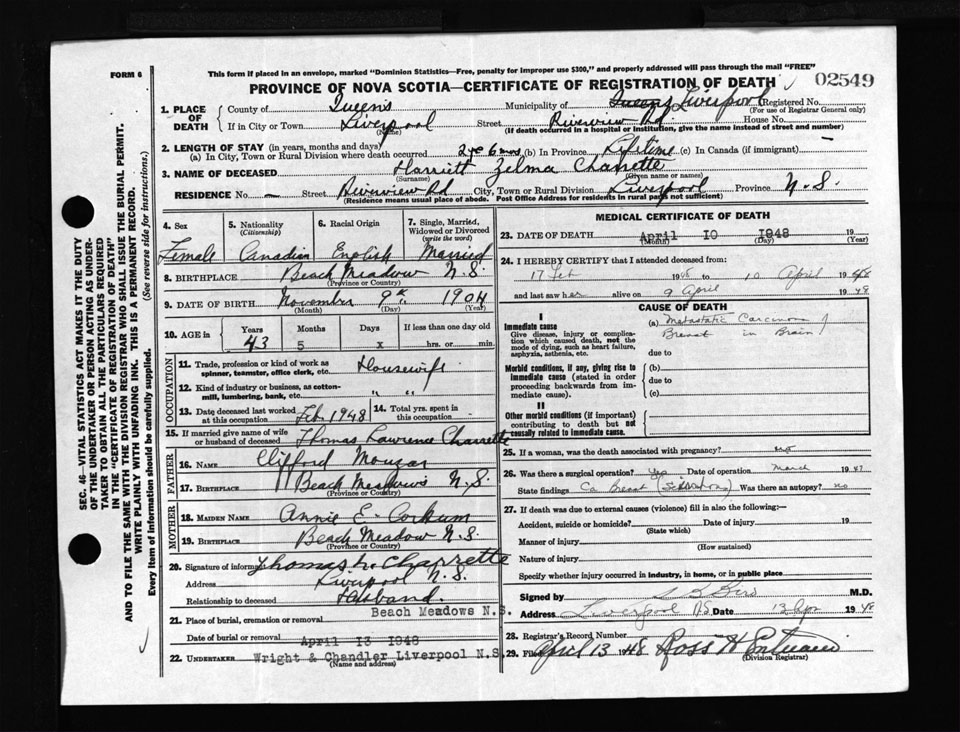 FORM 6
This form if placed in an envelope, marked "Dominion Statistics—Free, penalty for improper use $300," and properly addressed will pass through the mail "FREE"
PROVINCE OF NOVA SCOTIA—CERTIFICATE OF REGISTRATION OF DEATH
02549
1. PLACE OF DEATH
County of Queens Municipality of Queens Liverpool Registered No.
(For use of Registrar General only)
If in City or Town Liverpool Street Riverview Rd. House No.
(Name) (If death occurred in a hospital or institution, give the name instead of street and number)
2. LENGTH OF STAY (in years, months and days)
(a) In City, Town or Rural Division where death occurred 2 yr 6 mos (b) In Province Lifetime (c) In Canada (if immigrant) —
3. NAME OF DECEASED Harriett Zelma Charrette
(Surname) (Given name or names)
RESIDENCE No. — Street Riverview Rd City, Town or Rural Division Liverpool Province N.S.
(Residence means usual place of abode. Post Office Address for residents in rural parts not sufficient)
SEC. 46—VITAL STATISTICS ACT MAKES IT THE DUTY
OF THE UNDERTAKER OR PERSON ACTING AS UNDER-
TAKER TO OBTAIN ALL THE PARTICULARS REQUIRED
IN THE "CERTIFICATE OF REGISTRATION OF DEATH"
AND TO FILE THE SAME WITH THE DIVISION REGISTRAR WHO SHALL ISSUE THE BURIAL PERMIT.
WRITE PLAINLY WITH UNFADING INK. THIS IS A PERMANENT RECORD.
Every item of information should be carefully supplied. (See reverse side for instructions.)
4. Sex
Female
5. Nationality
(Citizenship)
Canadian
6. Racial Origin
English
7. Single, Married, Widowed or Divorced
(write the word)
Married
8. BIRTHPLACE Beach Meadow N.S.
(Province or Country)
9. DATE OF BIRTH November 9th 1904
(Month) (Day) (Year)
10. AGE in Years Months Days If less than one day old
43 5 x hrs. or min.
OCCUPATION
11. Trade, profession or kind of work as spinner, teamster, office clerk, etc. Housewife
12. Kind of industry or business, as cotton-mill, lumbering, bank, etc. " "
13. Date deceased last worked at this occupation Feb. 1948
14. Total yrs. spent in this occupation
15. If married give name of wife or husband of deceased Thomas Lawrence Charrette
FATHER
16. NAME Clifford
17. BIRTHPLACE Beach Meadows N.S.
(Province or Country)
MOTHER
18. MAIDEN NAME Annie E. Corkum
19. BIRTHPLACE Beach Meadow N.S.
(Province or Country)
20. Signature of informant Thomas L. Charrette
Address Liverpool N.S.
Relationship to deceased Husband.
21. Place of burial, cremation or removal Beach Meadows N.S.
Date of burial or removal April 13 1948
22. UNDERTAKER Wright & Chandler Liverpool N.S.
(Name and address)
MEDICAL CERTIFICATE OF DEATH
23. DATE OF DEATH April 10 1948 19
(Month) (Day) (Year)
24. I HEREBY CERTIFY that I attended deceased from:
17 Feb 1948 to 10 April 1948
and last saw her alive on 9 April 1948
CAUSE OF DEATH
I
Immediate cause
Give disease, injury or complication which caused death, not the mode of dying, such as heart failure, asphyxia, asthenia, etc.
(a) Metastatic Carcinoma
Breast in Brain
due to
Morbid conditions, if any, giving rise to immediate cause (stated in order proceeding backwards from immediate cause).
(b)
due to
(c)
II
Other morbid conditions (if important) contributing to death but not causally related to immediate cause.
25. If a woman, was the death associated with pregnancy? no
26. Was there a surgical operation? Yes Date of operation March 1947
State findings Ca Breast Was there an autopsy? no
27. If death was due to external causes (violence) fill in also the following:—
Accident, suicide or homicide? Date of injury 19
(State which)
Manner of injury
(How sustained)
Nature of injury
Specify whether injury occurred in industry, in home, or in public place
Signed by M.D.
Address Liverpool NS Date 13 Apr 1948
28. Registrar's Record Number
29. Filed April 13 1948 Ross H
(Division Registrar)